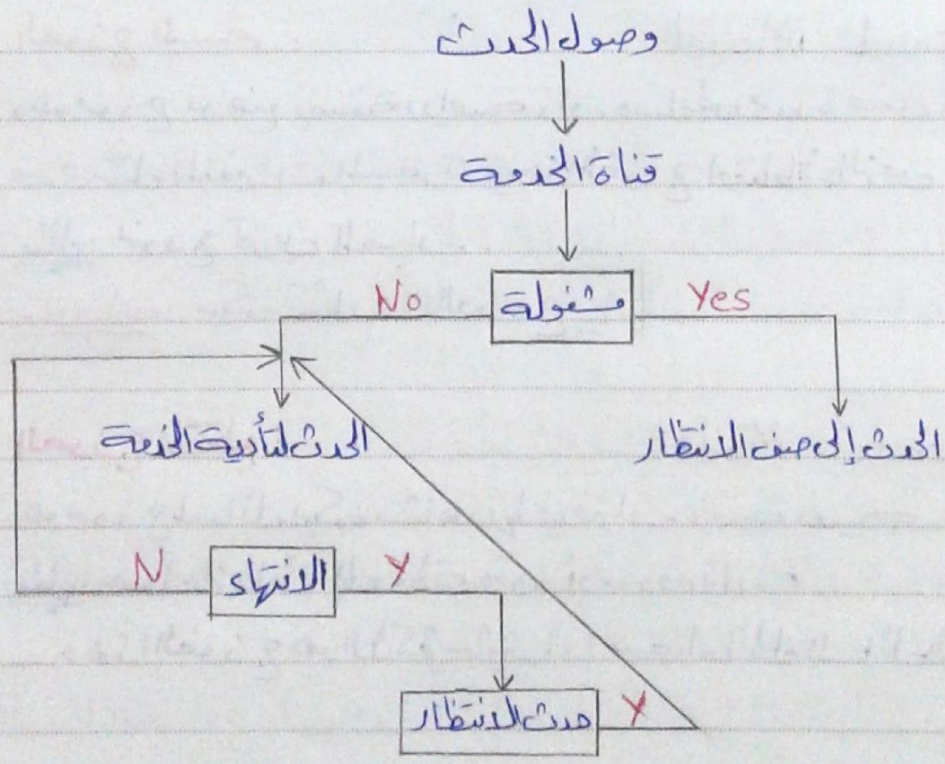 وصول الحدث
قناة الخدمة
مشغولة
No
Yes
الحدث لتأدية الخدمة
الحدث إلى صف الانتظار
N
الانتهاء
Y
حدث الانتظار
Y